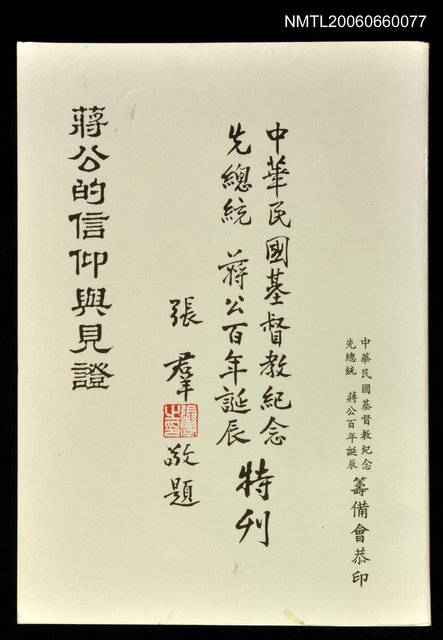 NMTL20060660077
中華民國基督教紀念
先總統 蔣公百年誕辰
籌備會恭印
中華民國基督教紀念
先總統 蔣公百年誕辰
特刊
張羣
敬題
蔣公的信仰與見證